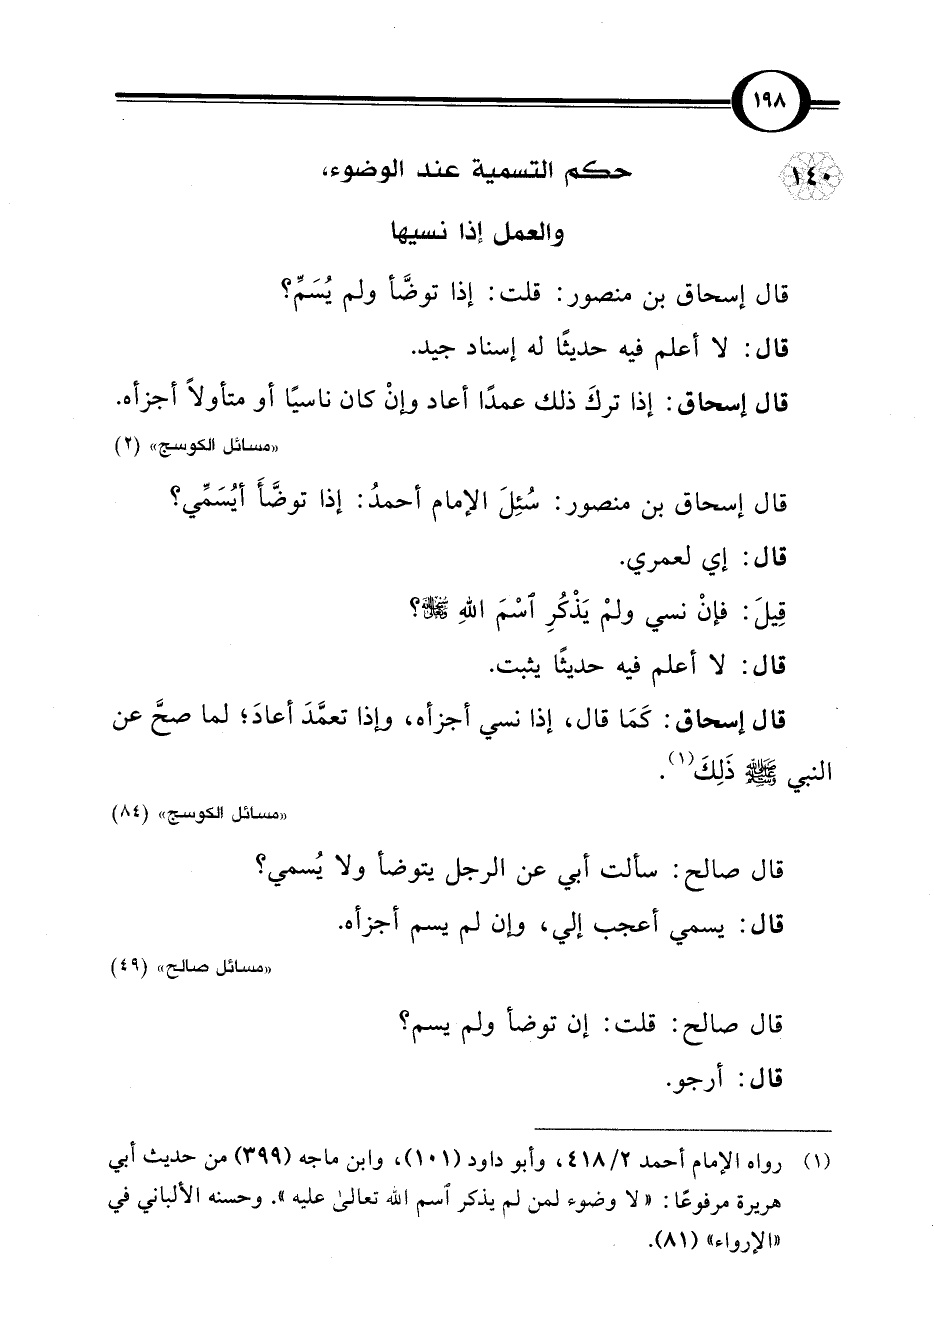 ١٩٨
١٤٠ حكم التسمية عند الوضوء،
والعمل إذا نسيها
قال إسحاق بن منصور: قلت: إذا توضَّأ ولم يُسَمِّ؟
قال: لا أعلم فيه حديثًا له إسناد جيد.
قال إسحاق: إذا تركَ ذلك عمدًا أعاد وإنْ كان ناسيًا أو متأولاً أجزأه.
«مسائل الكوسج» (٢)
قال إسحاق بن منصور: سُئِلَ الإمام أحمدُ: إذا توضَّأَ أيُسَمِّي؟
قال: إي لعمري.
قِيلَ: فإنْ نسي ولمْ يَذْكُرِ ٱسْمَ اللهِ ﷻ؟
قال: لا أعلم فيه حديثًا يثبت.
قال إسحاق: كَمَا قال، إذا نسي أجزأه، وإذا تعمَّدَ أعادَ؛ لما صحَّ عن
النبي ﷺ ذَلِكَ(١).
«مسائل الكوسج» (٨٤)
قال صالح: سألت أبي عن الرجل يتوضأ ولا يُسمي؟
قال: يسمي أعجب إلي، وإن لم يسم أجزأه.
«مسائل صالح» (٤٩)
قال صالح: قلت: إن توضأ ولم يسم؟
قال: أرجو.
(١) رواه الإمام أحمد ٢/ ٤١٨، وأبو داود (١٠١)، وابن ماجه (٣٩٩) من حديث أبي
هريرة مرفوعًا: «لا وضوء لمن لم يذكر ٱسم الله تعالىٰ عليه ». وحسنه الألباني في
«الإرواء» (٨١).